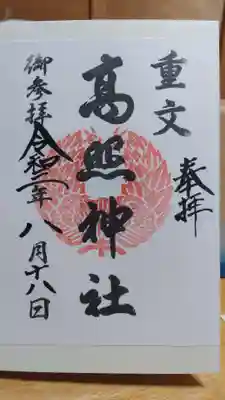 奉拝
重文
高照神社
御参拝令和二年八月十八日